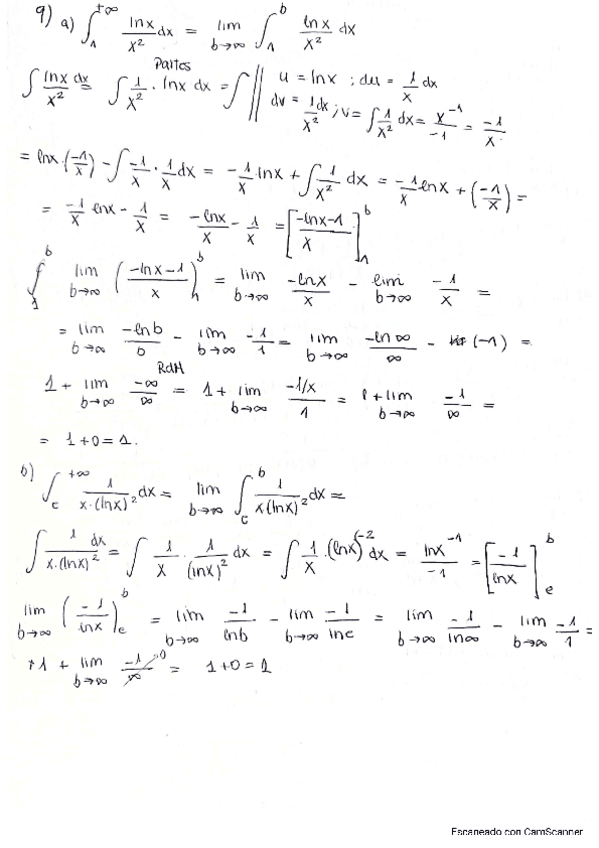 9) a) ∫₁^{+∞} lnx/x² dx = lim_{b→∞} ∫₁^b lnx/x² dx
∫ lnx dx/x² = ∫ 1/x² · lnx dx = Partes ∫ || u = lnx ; du = 1/x dx
dv = 1/x² dx ; v = ∫ 1/x² dx = x^{-1}/-1 = -1/x.
= lnx · (-1/x) - ∫ -1/x · 1/x dx = -1/x · lnx + ∫ 1/x² dx = -1/x lnx + (-1/x) =
= -1/x lnx - 1/x = -lnx/x - 1/x = [-lnx-1/x]₁^b
∫₁^b lim_{b→∞} (-lnx-1/x)₁^b = lim_{b→∞} -lnx/x - lim_{b→∞} -1/x =
= lim_{b→∞} -lnb/b - lim_{b→∞} -1/1 = lim_{b→∞} -ln∞/∞ - (-1) =
1 + lim_{b→∞} -∞/∞ = RdH 1 + lim_{b→∞} -1/x/1 = 1 + lim_{b→∞} -1/∞ =
= 1+0 = 1.
b) ∫_e^{+∞} 1/x·(lnx)² dx = lim_{b→∞} ∫_e^b 1/x(lnx)² dx =
∫ 1 dx/x·(lnx)² = ∫ 1/x · 1/(lnx)² dx = ∫ 1/x · (lnx)^{-2} dx = lnx^{-1}/-1 = [-1/lnx]_e^b
lim_{b→∞} (-1/lnx)_e^b = lim_{b→∞} -1/lnb - lim_{b→∞} -1/lne = lim_{b→∞} -1/ln∞ - lim_{b→∞} -1/1 =
+1 + lim_{b→∞} -1/∞ →0 = 1+0 = 1
Escaneado con CamScanner